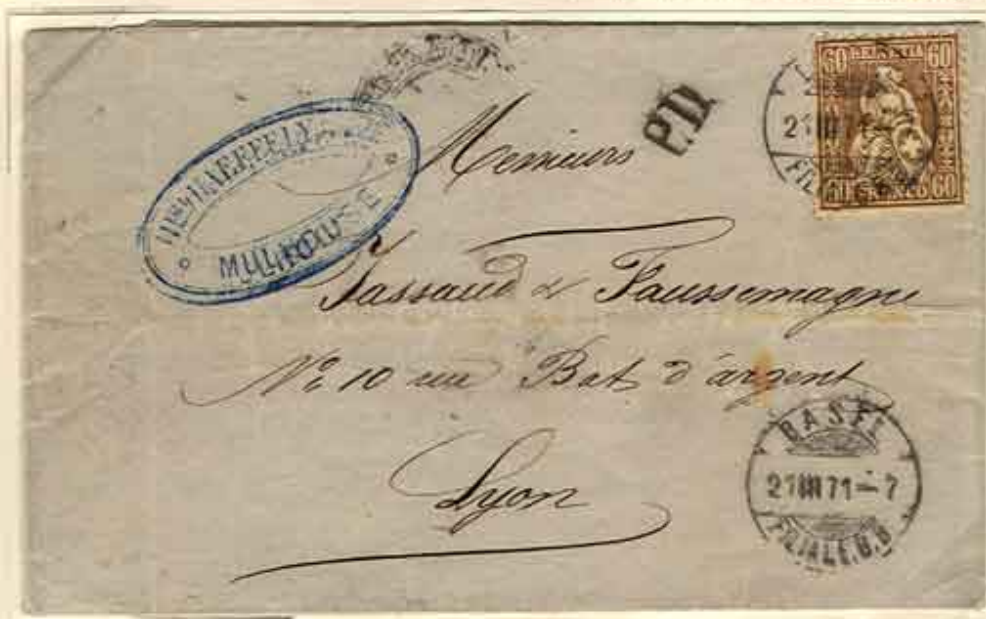 HAEFFELY
MULHOUSE
P.D.
60 HELVETIA 60
60 60
21 III 7
Messieurs
Tassaud & Faussemagne
No 10 rue Bat d'argent
Lyon
BASEL
21 III 71 – 7
FILIALE B.B